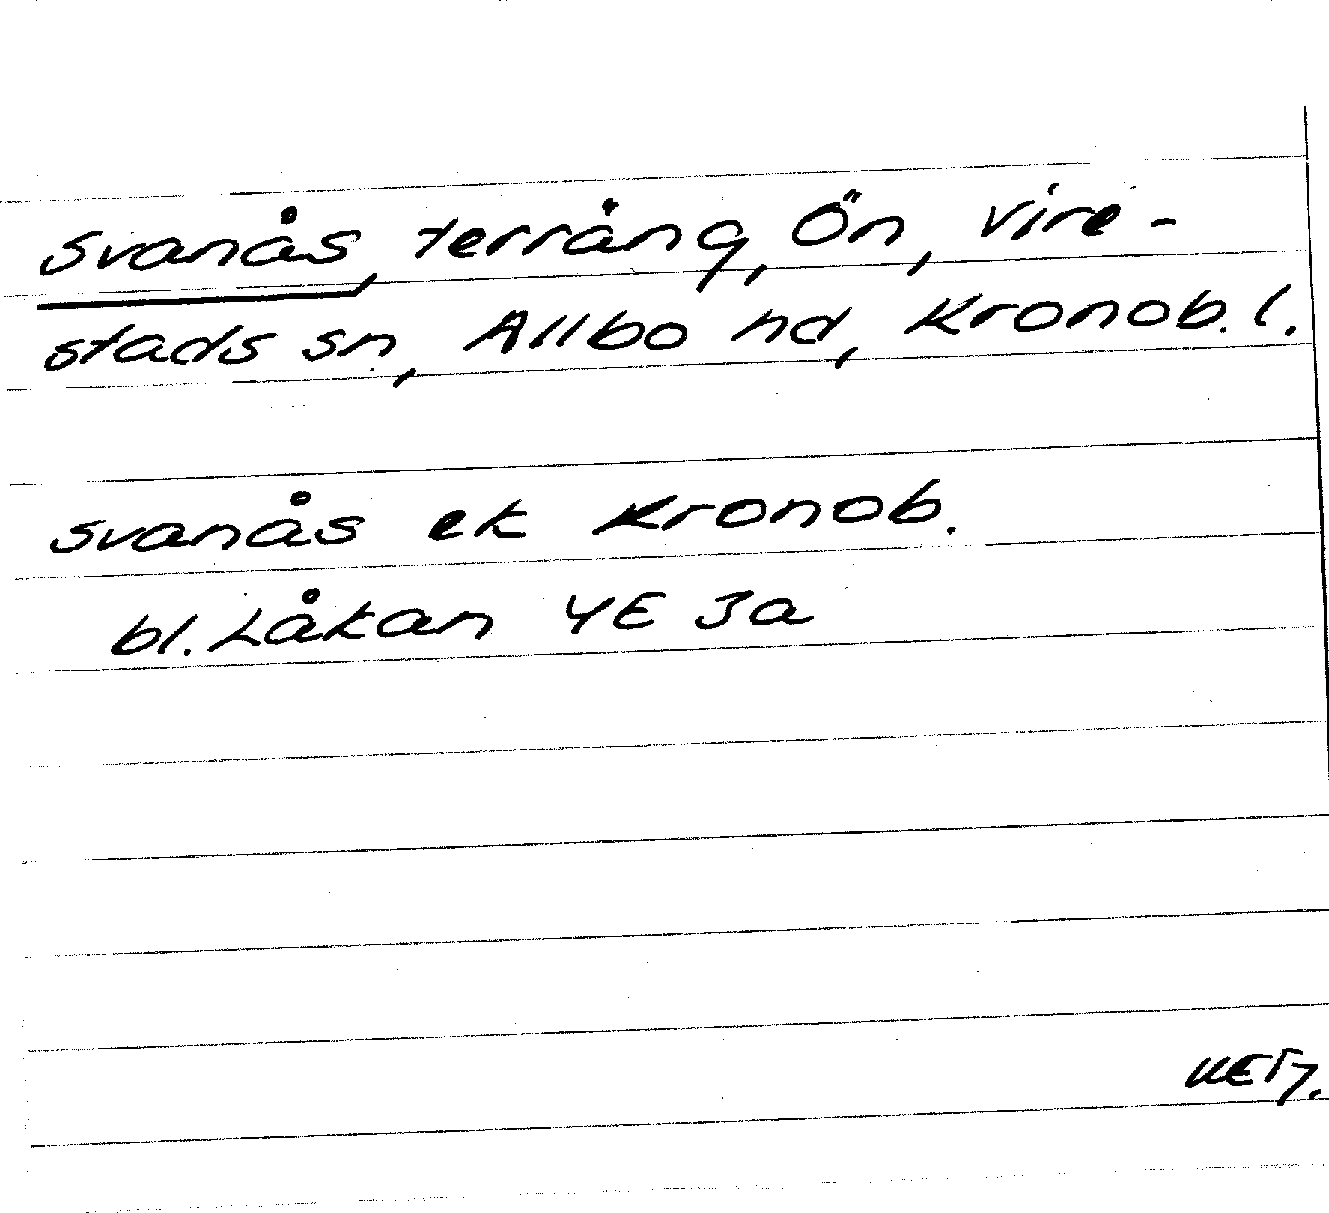 Svanås, terräng, Ön, Vire-
stads sn, Allbo hd, Kronob. l.
Svanås ek Kronob.
bl. Låkan 4E 3a